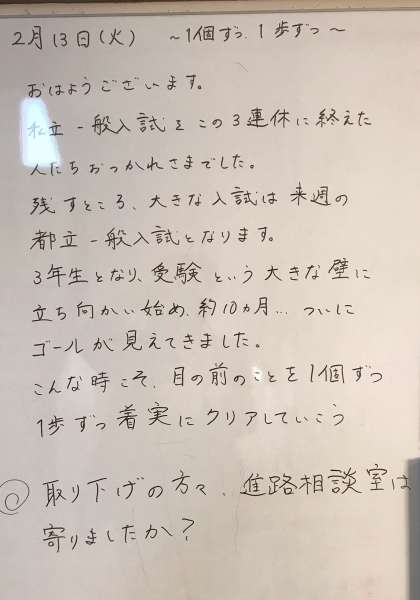 2月13日(火) ~1個ずつ、1歩ずつ~
おはようございます。
私立一般入試をこの3連休に終えた
人たちおつかれさまでした。
残すところ、大きな入試は来週の
都立一般入試となります。
3年生となり、受験という大きな壁に
立ち向かい始め、約10ヵ月…ついに
ゴールが見えてきました。
こんな時こそ、目の前のことを1個ずつ
1歩ずつ着実にクリアしていこう
◎取り下げの方々、進路相談室は
寄りましたか?